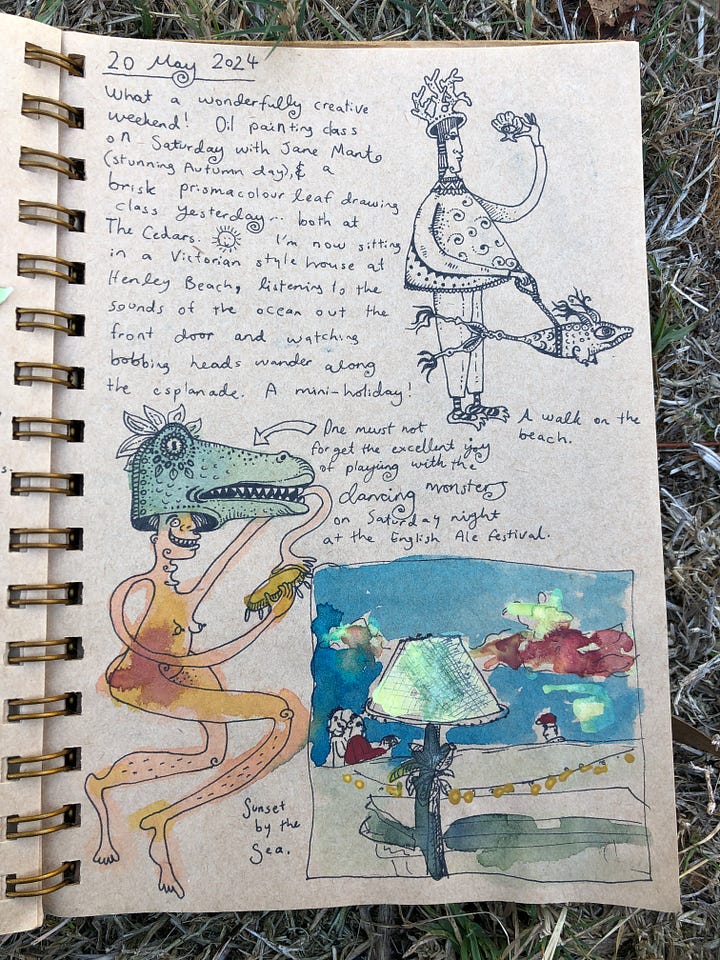 20 May 2024
What a wonderfully creative
weekend! Oil painting class
on Saturday with Jane Manto
(stunning Autumn day), & a
brisk prismacolour leaf drawing
class yesterday... both at
The Cedars. I'm now sitting
in a Victorian style house at
Henley Beach, listening to the
sounds of the ocean out the
front door and watching
bobbing heads wander along
the esplanade. A mini-holiday!
A walk on the
beach.
One must not
forget the excellent joy
of playing with the
dancing monsters
on Saturday night
at the English Ale festival.
Sunset
by the
Sea.